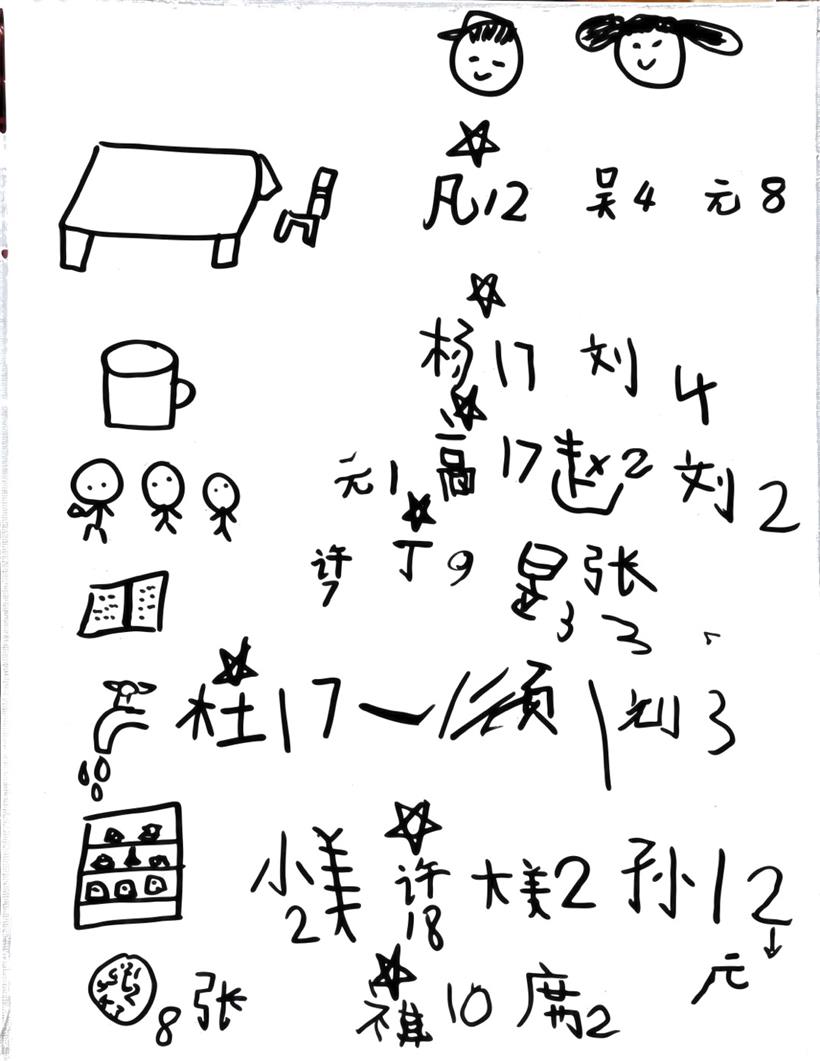 凡12 吴4 元8
杨17 刘4
元1 高17 赵2 刘2
许7 丁9 昱3 张3
杜17 一1 须1 刘3
小美2 许18 大美2 孙12
元
8张 祺10 席2